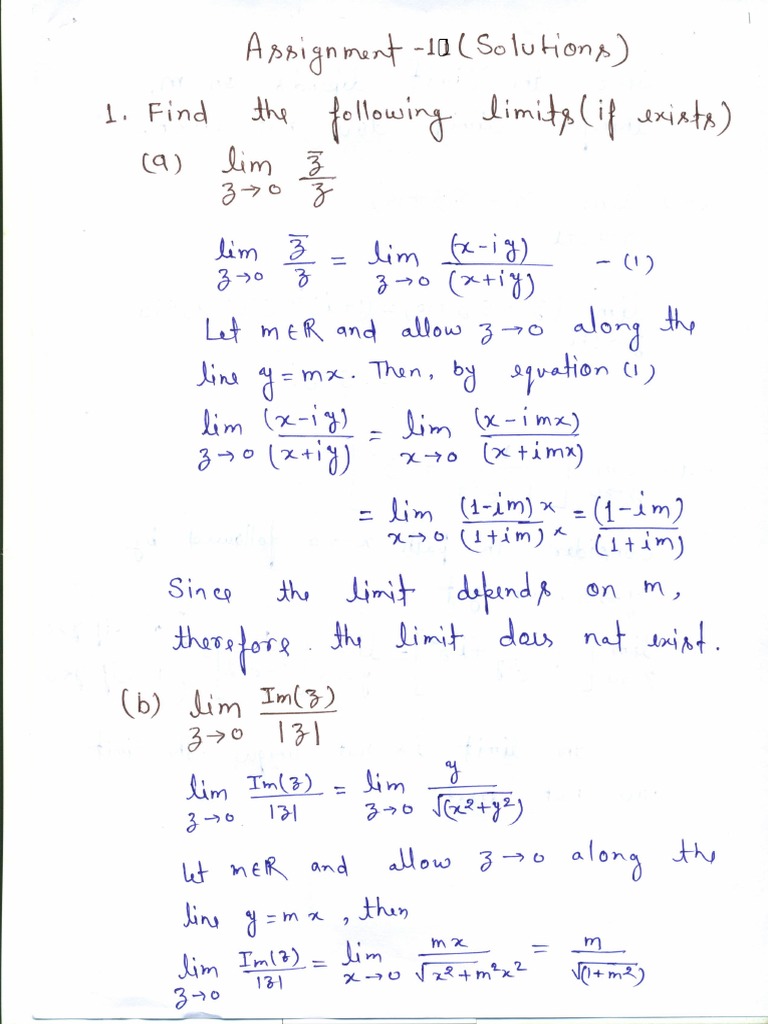 1
Assignment -10 (Solutions)
1. Find the following limits (if exists)
(a) lim_{z→0} z̄/z
lim_{z→0} z̄/z = lim_{z→0} (x-iy)/(x+iy) - (1)
Let m∈R and allow z→0 along the
line y=mx. Then, by equation (1)
lim_{z→0} (x-iy)/(x+iy) = lim_{x→0} (x-imx)/(x+imx)
= lim_{x→0} (1-im)x/(1+im)x = (1-im)/(1+im)
Since the limit depends on m,
therefore. the limit does not exist.
(b) lim_{z→0} Im(z)/|z|
lim_{z→0} Im(z)/|z| = lim_{z→0} y/√(x²+y²)
Let m∈R and allow z→0 along the
line y=mx, then
lim_{z→0} Im(z)/|z| = lim_{x→0} mx/√x²+m²x² = m/√(1+m²)